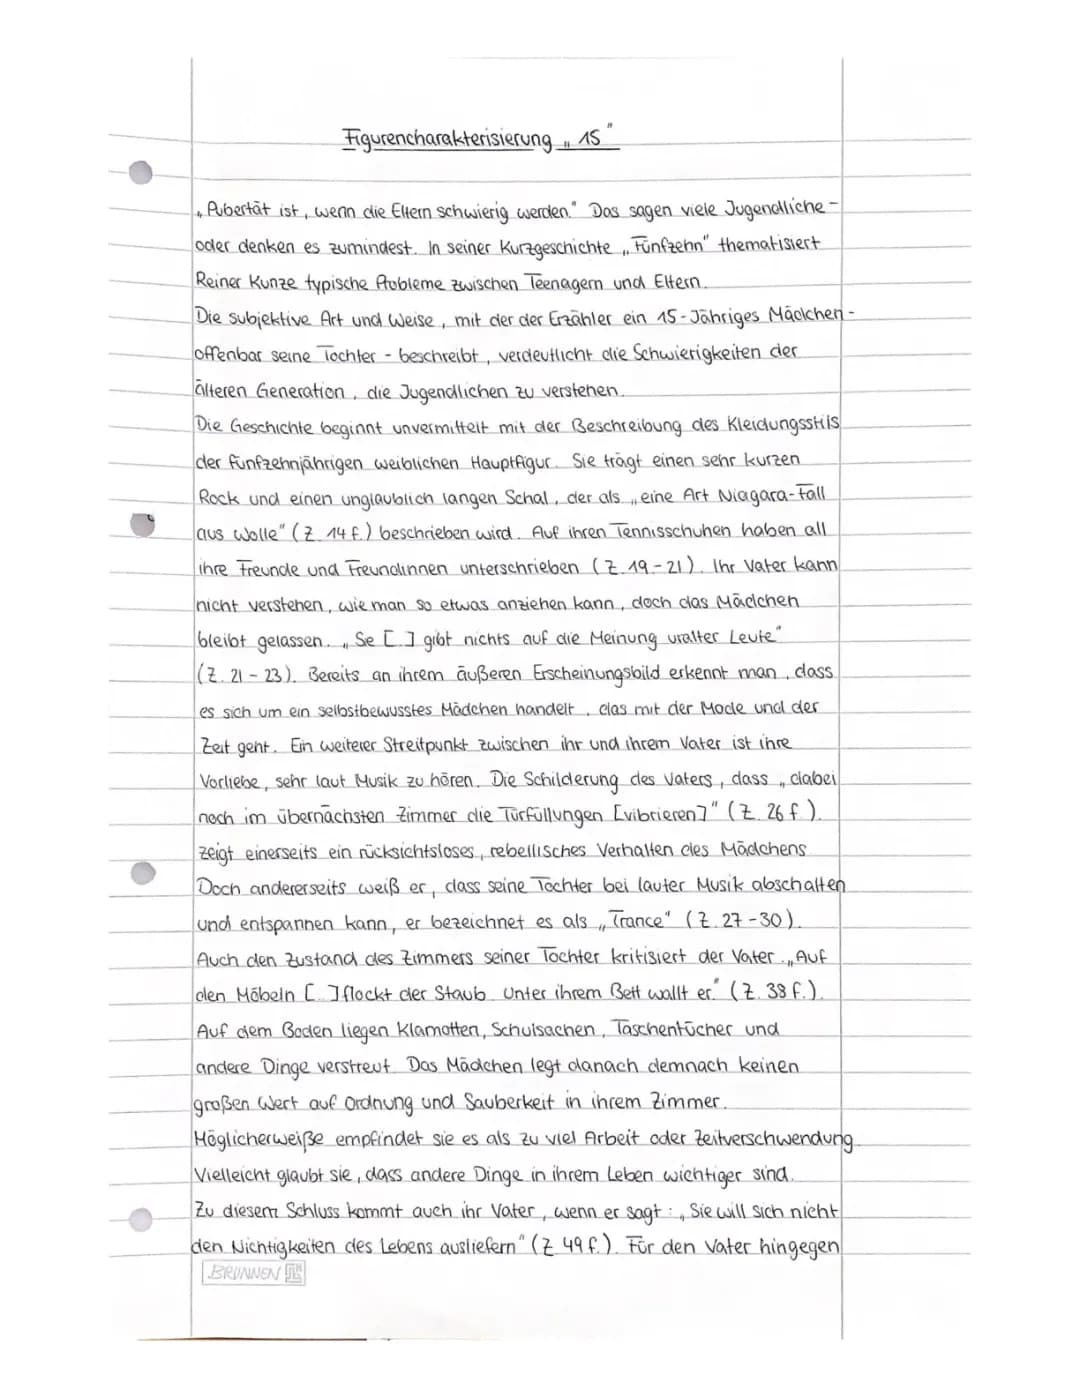 Figurencharakterisierung „15"
„Pubertät ist, wenn die Eltern schwierig werden." Das sagen viele Jugendliche -
oder denken es zumindest. In seiner Kurzgeschichte „Fünfzehn" thematisiert
Reiner Kunze typische Probleme zwischen Teenagern und Eltern.
Die subjektive Art und Weise, mit der der Erzähler ein 15-Jähriges Mädchen -
offenbar seine Tochter - beschreibt, verdeutlicht die Schwierigkeiten der
älteren Generation, die Jugendlichen zu verstehen.
Die Geschichte beginnt unvermittelt mit der Beschreibung des Kleidungsstils
der fünfzehnjährigen weiblichen Hauptfigur. Sie trägt einen sehr kurzen
Rock und einen unglaublich langen Schal, der als „eine Art Niagara-Fall
aus Wolle" (Z. 14 f.) beschrieben wird. Auf ihren Tennisschuhen haben all
ihre Freunde und Freundinnen unterschrieben (Z. 19-21). Ihr Vater kann
nicht verstehen, wie man so etwas anziehen kann, doch das Mädchen
bleibt gelassen. „Se [..] gibt nichts auf die Meinung uralter Leute"
(Z. 21 - 23). Bereits an ihrem äußeren Erscheinungsbild erkennt man, dass
es sich um ein selbstbewusstes Mädchen handelt, das mit der Mode und der
Zeit geht. Ein weiterer Streitpunkt zwischen ihr und ihrem Vater ist ihre
Vorliebe, sehr laut Musik zu hören. Die Schilderung des Vaters, dass „dabei
noch im übernächsten Zimmer die Türfüllungen [vibrieren]" (Z. 26 f.).
zeigt einerseits ein rücksichtsloses, rebellisches Verhalten des Mädchens
Doch andererseits weiß er, dass seine Tochter bei lauter Musik abschalten
und entspannen kann, er bezeichnet es als „Trance" (Z. 27-30).
Auch den Zustand des Zimmers seiner Tochter kritisiert der Vater. „Auf
den Möbeln [..] flockt der Staub. Unter ihrem Bett wallt er." (Z. 38 f.).
Auf dem Boden liegen Klamotten, Schulsachen, Taschentücher und
andere Dinge verstreut. Das Mädchen legt danach demnach keinen
großen Wert auf Ordnung und Sauberkeit in ihrem Zimmer.
Möglicherweiße empfindet sie es als zu viel Arbeit oder Zeitverschwendung.
Vielleicht glaubt sie, dass andere Dinge in ihrem Leben wichtiger sind.
Zu diesem Schluss kommt auch ihr Vater, wenn er sagt: „Sie will sich nicht
den Nichtigkeiten des Lebens ausliefern" (Z. 49 f.). Für den Vater hingegen
BRUNNEN